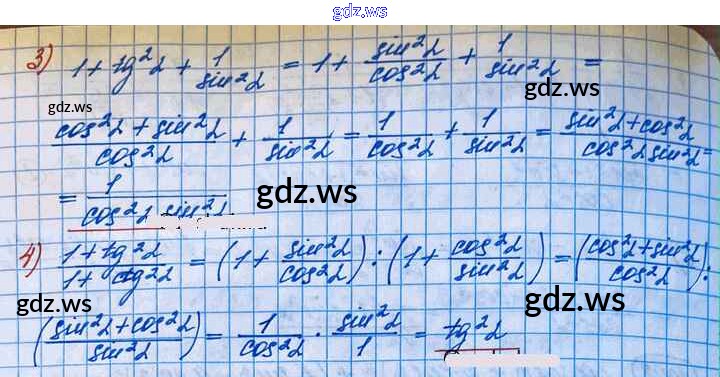 gdz.ws
3) 1 + tg²α + 1/sin²α = 1 + sin²α/cos²α + 1/sin²α =
gdz.ws gdz.ws
(cos²α + sin²α)/cos²α + 1/sin²α = 1/cos²α + 1/sin²α = (sin²α + cos²α)/(cos²α sin²α) =
= 1/(cos²α sin²α)
gdz.ws
4) (1 + tg²α)/(1 + ctg²α) = (1 + sin²α/cos²α) : (1 + cos²α/sin²α) = ((cos²α + sin²α)/cos²α) :
gdz.ws gdz.ws
((sin²α + cos²α)/sin²α) = 1/cos²α · sin²α/1 = tg²α